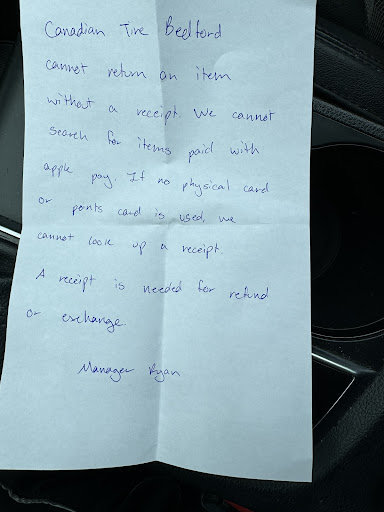 Canadian Tire Bedford
cannot return an item
without a receipt. We cannot
search for items paid with
apple pay. If no physical card
or ponts card is used, we
cannot look up a receipt.
A receipt is needed for refund
or exchange
Manager Ryan